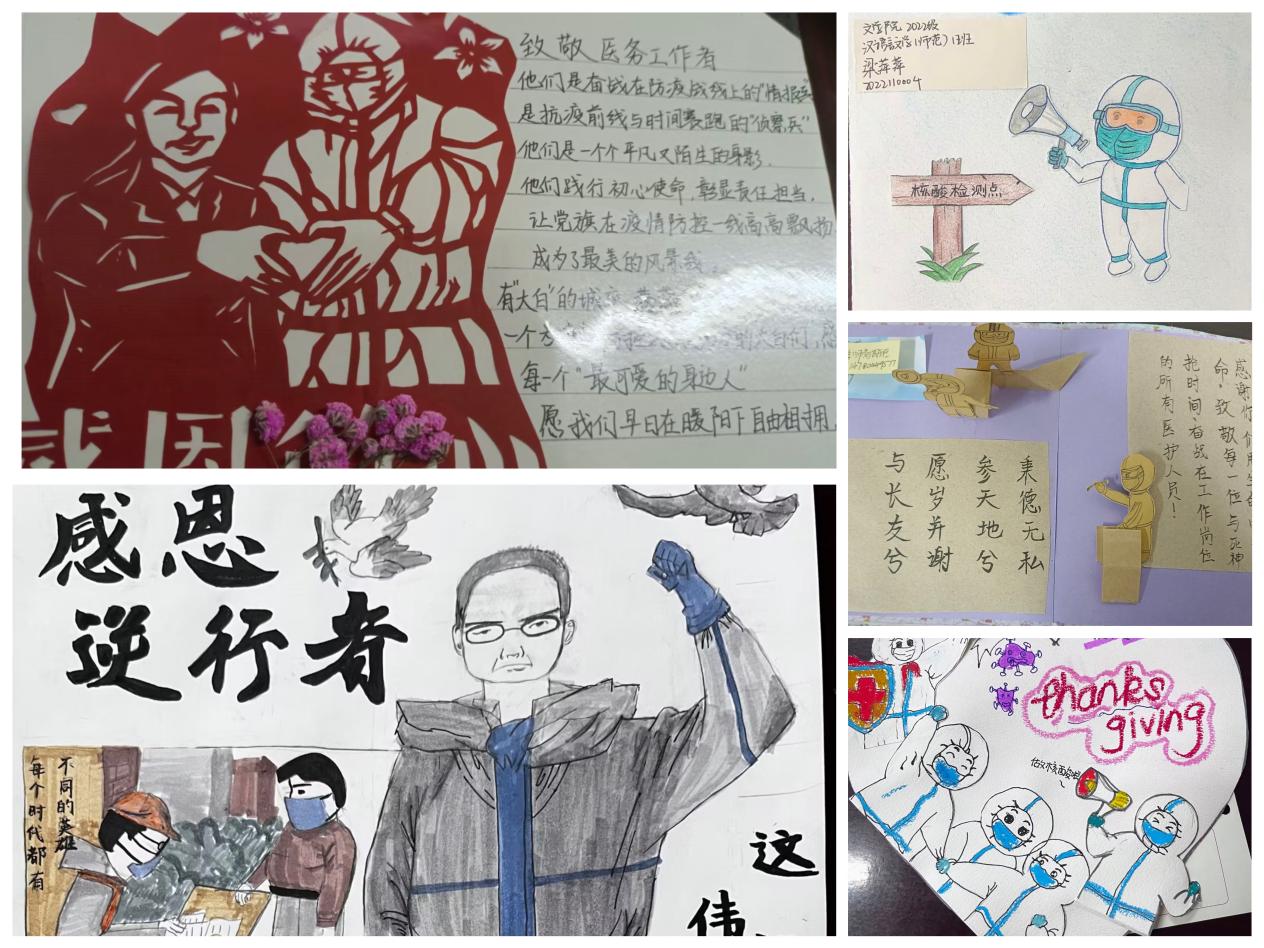 致敬医务工作者
他们是奋战在防疫战线上的"情报兵
是抗疫前线与时间赛跑的"侦察兵"
他们是一个个平凡又陌生的身影.
他们践行初心使命,彰显责任担当,
让党旗在疫情防控一线高高飘扬
成为了最美的风景线.
有"大白"的城
一个
的大白们,感
每一个"最可爱的身边人"
愿我们早日在暖阳下自由相拥.
感恩
文学院 2022级
汉语言文学(师范)1班
梁萍萍
2022110004
核酸检测点
感谢你们用生命
命,致敬每一位与死神
抢时间,奋战在工作岗位
的所有医护人员!
秉德无私
参天地兮
愿岁并谢
与长友兮
感恩
逆行者
不同的英雄
每个时代都有
这
伟
thanks
giving